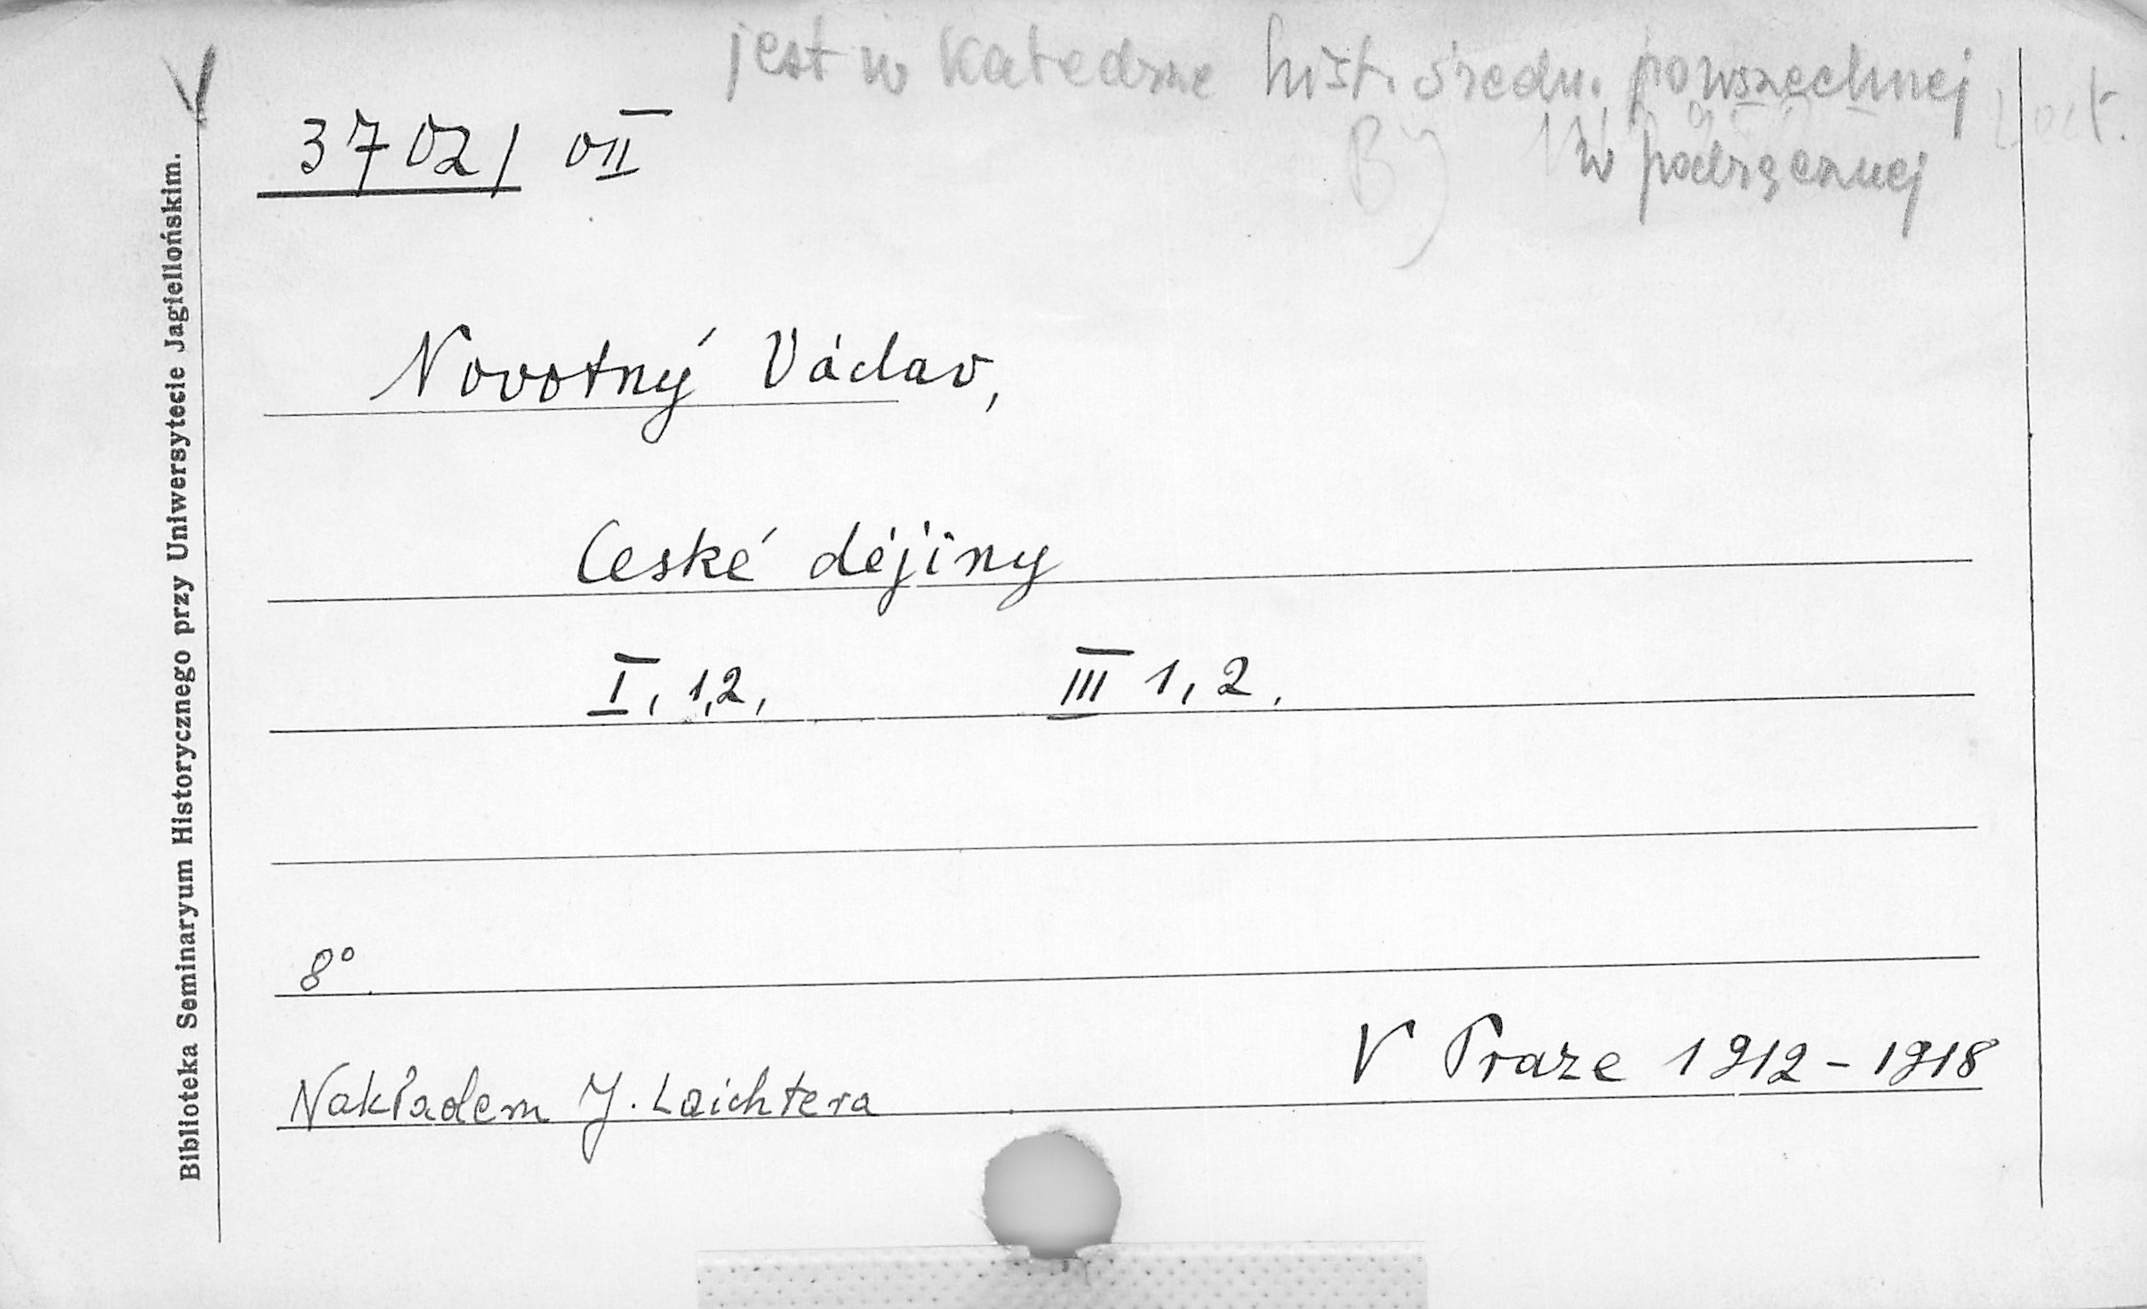 jest w Katedrze hist. średn. powszechnej
w podręcznej
B)
3702/ OII
Novotný Václav,
České déjiny
I, 1,2, III 1, 2.
8°
V Praze 1912-1918
Nakładem J. Laichtera
Biblioteka Seminaryum Historycznego przy Uniwersytecie Jagiellońskim.